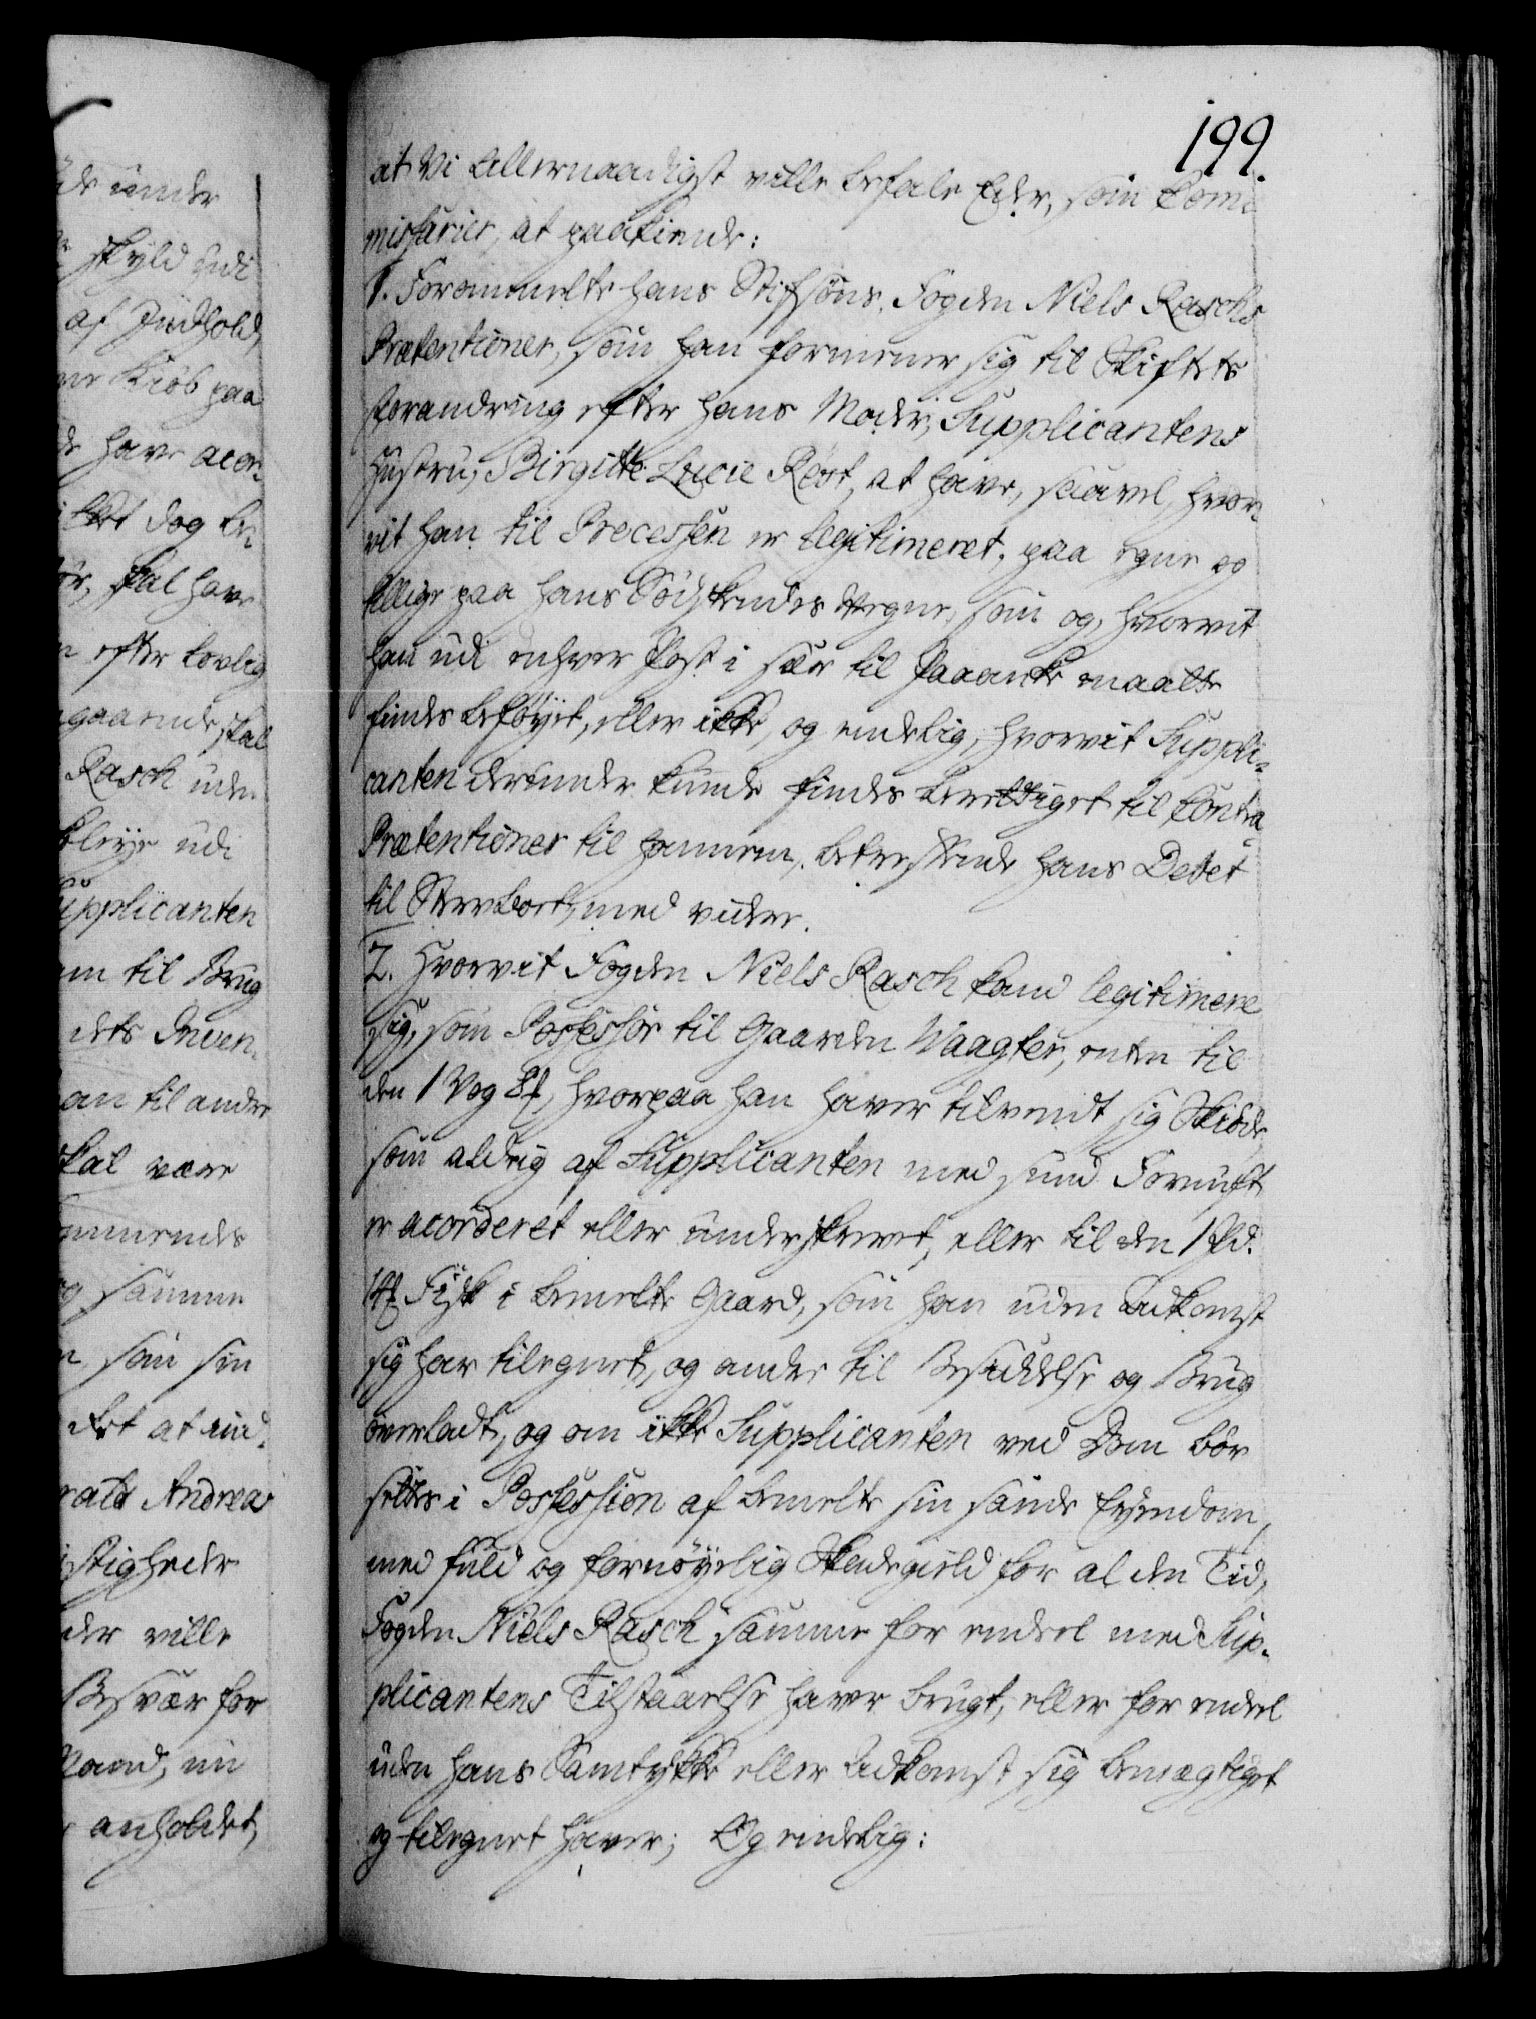 199.
at Vi Allernaadigst ville befale Eder, som Com-
missarier, at paakiende:
1. Forommelte hans Stifsøns, Fogden Niels Raschs
Prætentioner, som han formener sig til Skiftets
forandring efter hans Moder, Supplicantens
Hustru, Birgitte Lucie Røst, at have, saavel, hvor-
vit han til Processen er legitimeret, paa egne og
tillige paa hans Sødskendes Vegne, som og, hvorvit
han udi enhver Post i sær til Paaanke maatte
findes beføyet, eller ikke, og endelig, hvorvit Suppli-
canten derunder kunde findes berettiget til Contra
Prætentioner til hannem, betreffende hans Debet
til Stervboet, med videre.
2. Hvorvit Fogden Niels Rasch kand legitimere
sig, som Possessor til Gaarden Waagter, enten til
den 1 Vog, hvorpaa han haver tilvendt sig Skiøde,
som aldrig af Supplicanten med sund Fornuft
er acorderet eller underskrevet, eller til den 1 Pd.
Fisk i bemelte Gaard, som han uden Adkomst
sig har tilegnet, og andre til Besiddelse og Brug
overladt, og om ikke Supplicanten ved Dom bør
settes i Possession af bemelte sin sande Eyendom,
med fuld og fornøyelig Skadegield for al den Tid,
Fogden Niels Rasch samme for endeel med Sup-
plicantens Tilstaaelse haver brugt, eller for endeel
uden hans Samtykke eller Adkomst sig bemægtiget
og tilegnet haver; Og endelig: